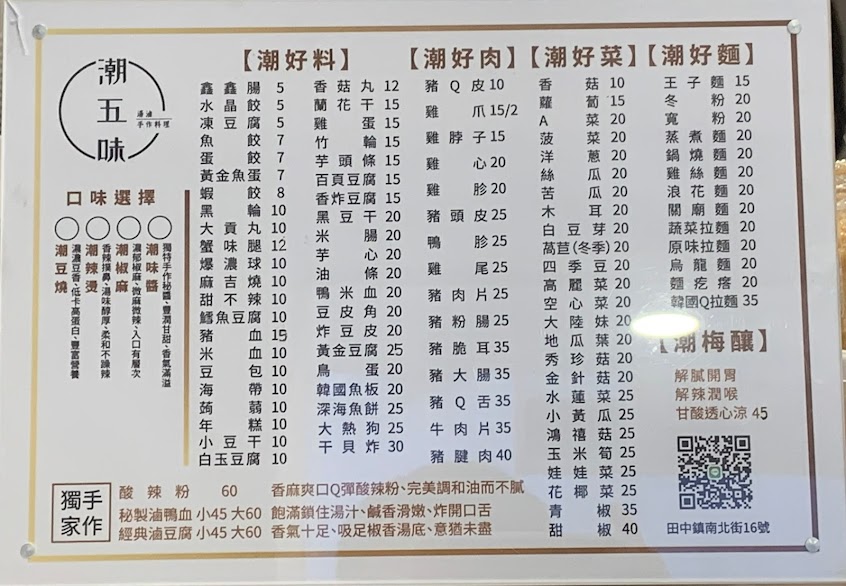 潮五味
滷滷
手作料理
口味選擇
潮味醬
獨特手作秘醬、豐潤甘甜、香氣滿溢
潮椒麻
濃郁椒麻、微麻微辣、入口有層次
潮辣燙
香辣撲鼻、湯味醇厚、柔和不躁辣
潮豆燒
濃濃豆香、低卡高蛋白、豐富營養
【潮好料】
鑫鑫腸 5
水晶餃 5
凍豆腐 5
魚餃 7
蛋餃 7
黃金魚蛋 7
蝦餃 8
黑輪 10
大貢丸 10
蟹味腿 12
爆濃球 10
麻吉燒 10
甜不辣 10
鱈魚豆腐 10
豬血 15
米血 10
豆包 10
海帶 10
蒟蒻 10
年糕 10
小豆干 10
白玉豆腐 10
香菇丸 12
蘭花干 15
雞蛋 15
竹輪 15
芋頭條 15
百頁豆腐 15
香炸豆腐 15
黑豆干 20
米腸 20
芋心 20
油條 20
鴨米血 20
豆皮角 20
炸豆皮 20
黃金豆腐 25
鳥蛋 20
韓國魚板 20
深海魚餅 25
大熱狗 25
干貝炸 30
【潮好肉】
豬Q皮 10
雞爪 15/2
雞脖子 15
雞心 20
雞胗 20
豬頭皮 25
鴨胗 25
雞尾 25
豬肉片 25
豬粉腸 25
豬脆耳 35
豬大腸 35
豬Q舌 35
牛肉片 35
豬腱肉 40
【潮好菜】
香菇 10
蘿蔔 15
A菜 20
菠菜 20
洋蔥 20
絲瓜 20
苦瓜 20
木耳 20
白豆芽 20
萵苣(冬季) 20
四季豆 20
高麗菜 20
空心菜 20
大陸妹 20
地瓜葉 20
秀珍菇 20
金針菇 20
水蓮菜 25
小黃瓜 25
鴻禧菇 25
玉米筍 25
娃娃菜 25
花椰菜 25
青椒 35
甜椒 40
【潮好麵】
王子麵 15
冬粉 20
寬粉 20
蒸煮麵 20
鍋燒麵 20
雞絲麵 20
浪花麵 20
關廟麵 20
蔬菜拉麵 20
原味拉麵 20
烏龍麵 20
麵疙瘩 20
韓國Q拉麵 35
【潮梅釀】
解膩開胃
解辣潤喉
甘酸透心涼 45
田中鎮南北街16號
獨家手作
酸辣粉 60 香麻爽口Q彈酸辣粉、完美調和油而不膩
秘製滷鴨血 小45 大60 飽滿鎖住湯汁、鹹香滑嫩、炸開口舌
經典滷豆腐 小45 大60 香氣十足、吸足椒香湯底、意猶未盡